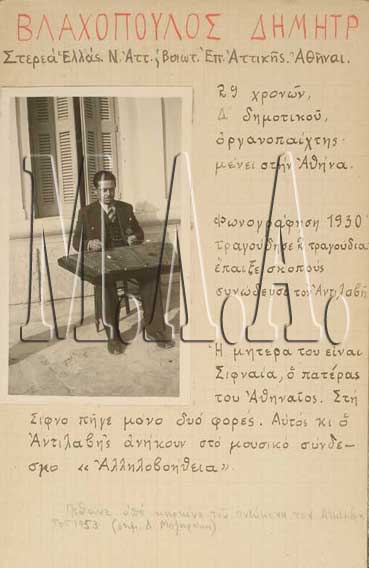 ΒΛΑΧΟΠΟΥΛΟΣ ΔΗΜΗΤΡ
Στερεά Ἑλλάς. Ν. Ἀττ. ἡ Βοιωτ. Ἐπ. Ἀττικῆς. Ἀθῆναι.
29 χρονῶν,
Δ´ δημοτικοῦ,
ὀργανοπαίχτης
μένει στὴν Ἀθήνα.
Φωνογράφηση 1930
τραγούδησε 2 τραγούδια
ἔπαιξε σκοποὺς
συνώδευσε τὸν Ἀντιλαβῆ
Ἡ μητέρα του εἶναι
Σιφναία, ὁ πατέρας
του Ἀθηναῖος. Στὴ
Σίφνο πῆγε μόνο δυὸ φορές. Αὐτὸς κι ὁ
Ἀντιλαβῆς ἀνήκουν στὸ μουσικὸ σύνδε-
σμο «Ἀλληλοβοήθεια».
Πέθανε ἀπὸ καρκίνο τοῦ πνεύμονα τὸν
τοῦ 1953
Μ.Λ.Α.